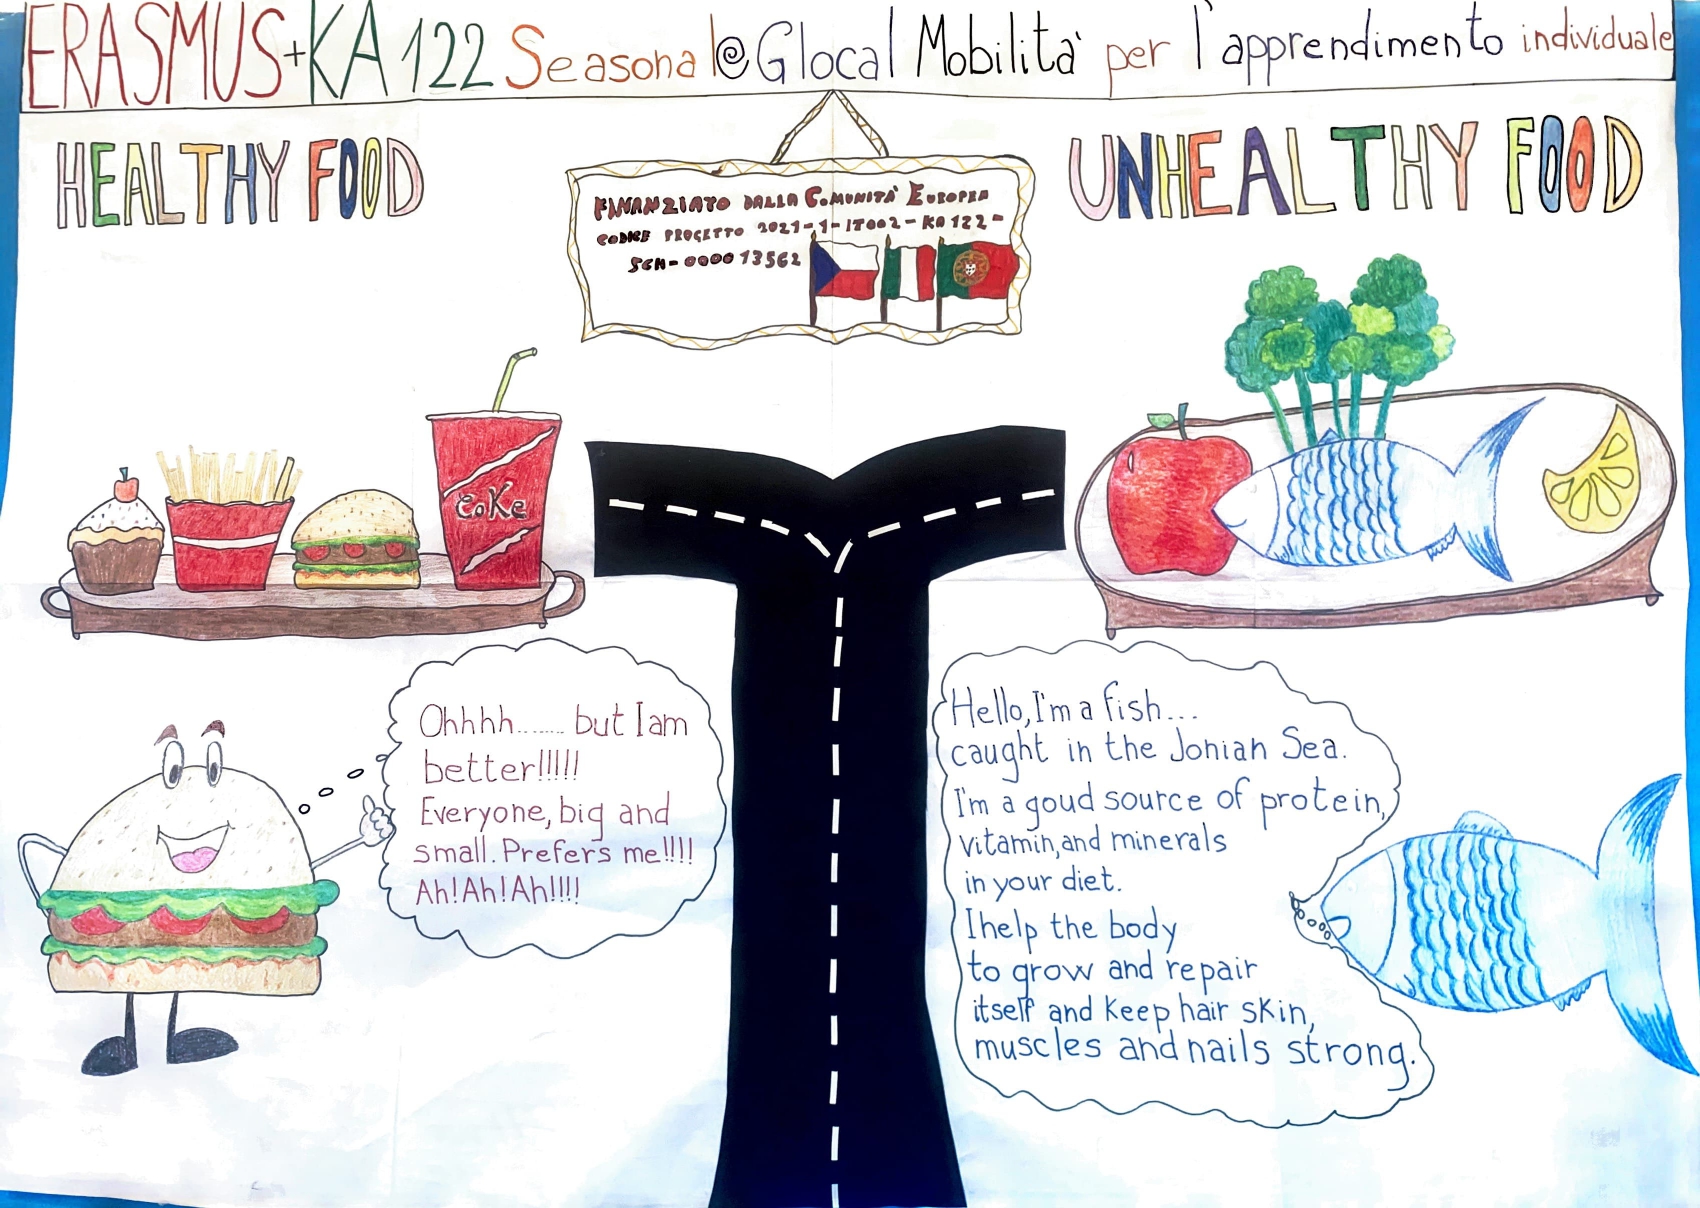 ERASMUS+KA122 Seasonal@Glocal Mobilità per l'apprendimento individuale
HEALTHY FOOD
UNHEALTHY FOOD
FINANZIATO DALLA COMUNITÀ EUROPEA
CODICE PROGETTO 2021-1-IT002-KA122-
SCH-000013562
CoKe
Ohhhh....... but I am
better!!!!!
Everyone, big and
small. Prefers me!!!!
Ah!Ah!Ah!!!!
Hello, I'm a fish...
caught in the Jonian Sea.
I'm a goud source of protein,
vitamin, and minerals
in your diet.
I help the body
to grow and repair
itself and keep hair skin,
muscles and nails strong.